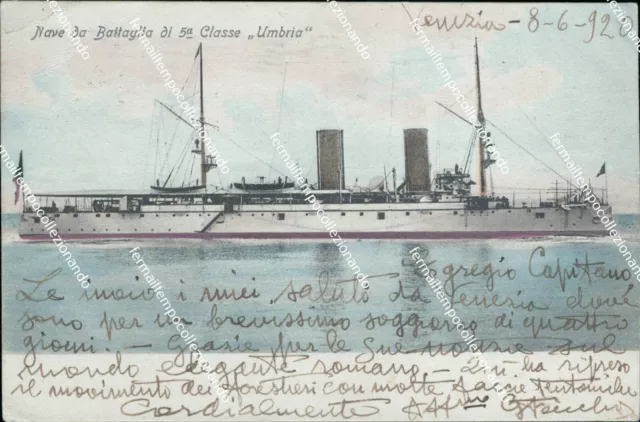 Nave da Battaglia di 5ª Classe „Umbria"
Venezia - 8-6-920
Egregio Capitano
Le invio i miei saluti da Venezia dove
sono per un brevissimo soggiorno di quattro
giorni. - Grazie per le Sue notizie sul
mondo elegante romano. - Qui ha ripreso
il movimento dei forestieri con molte facce
Cordialmente Aff.mo
fermailtempocollezionando